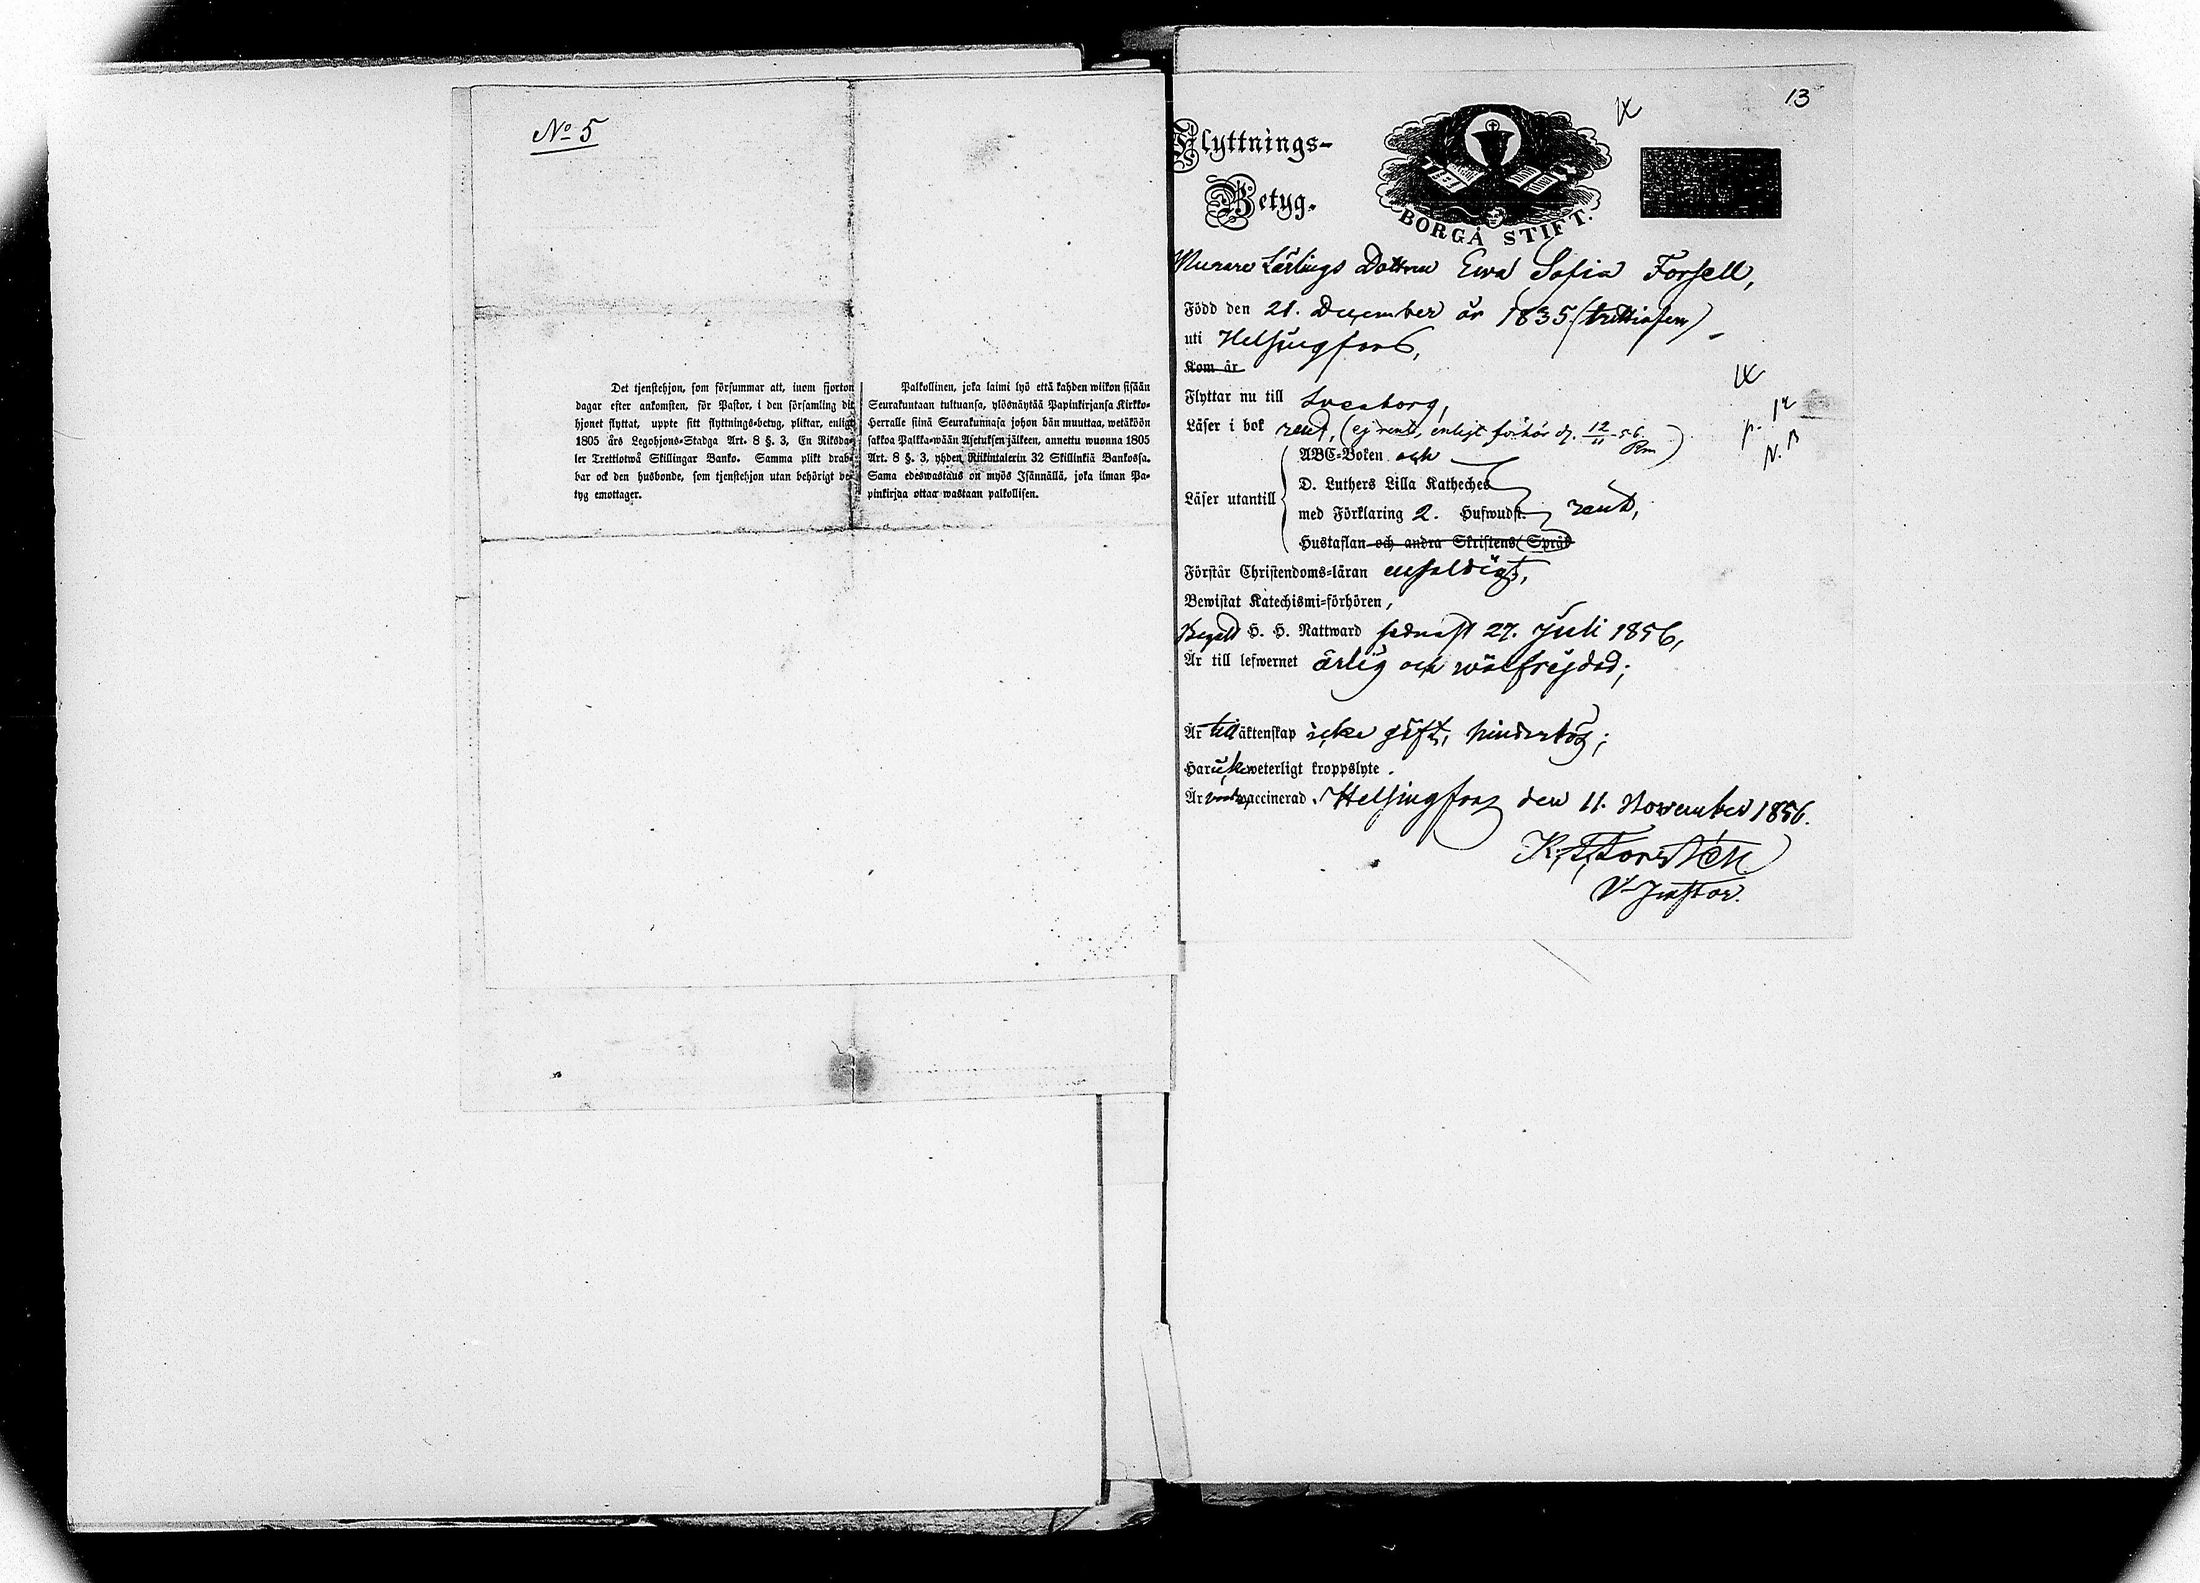 No 5
Det tjenstehjon, som försummar att, inom fjorton
dagar efter ankomsten, för Pastor, i den församling dit
hjonet flyttat, uppte sitt flyttnings-betyg, pliktar, enligt
1805 års Legohjons-Stadga Art. 8 §. 3, En Riksda-
ler Trettiotwå Skillingar Banko. Samma plikt drab-
bar ock den husbonde, som tjenstehjon utan behörigt be-
tyg emottager.
Palkollinen, joka laimi lyö että kahden wiikon sisään
Seurakuntaan tultuansa, ylösnäytää Papinkirjansa Kirkko-
Herralle siinä Seurakunnasa johon hän muuttaa, wetäköön
sakkoa Palkka-wään Asetuksen jälkeen, annettu wuonna 1805
Art. 8 §. 3, yhden Riikintalerin 32 Skillinkiä Bankossa.
Sama edeswastaus on myös Isännällä, joka ilman Pa-
pinkirjaa ottaa wastaan palkollisen.
13
Flyttnings-
Betyg.
BORGÅ STIFT.
Murare Lärlings Dottren Ewa Sofia Forsell,
Född den 21. December år 1835 (trettiofem)
uti Helsingfors,
Kom år
Flyttar nu till Sveaborg,
Läser i bok rent, (ej rent, enligt förhör d. 12/11 -56.
p. 12
N. B
Läser utantill
ABC-Boken och
D. Luthers Lilla Katheches
med Förklaring 2. Hufwudst. rent,
Hustaflan och andra Skriftens Språk
Förstår Christendoms-läran enfaldigt,
Bewistat Katechismi-förhören,
Begått H. H. Nattward sednast 27. Juli 1856,
Är till lefwernet ärlig och wälfrejdad;
Är till äktenskap icke gift, hinderlös;
Har icke weterligt kroppslyte.
Är vaccinerad. Helsingfors den 11. November 1856.
K. F. Forstén
V-Pastor.